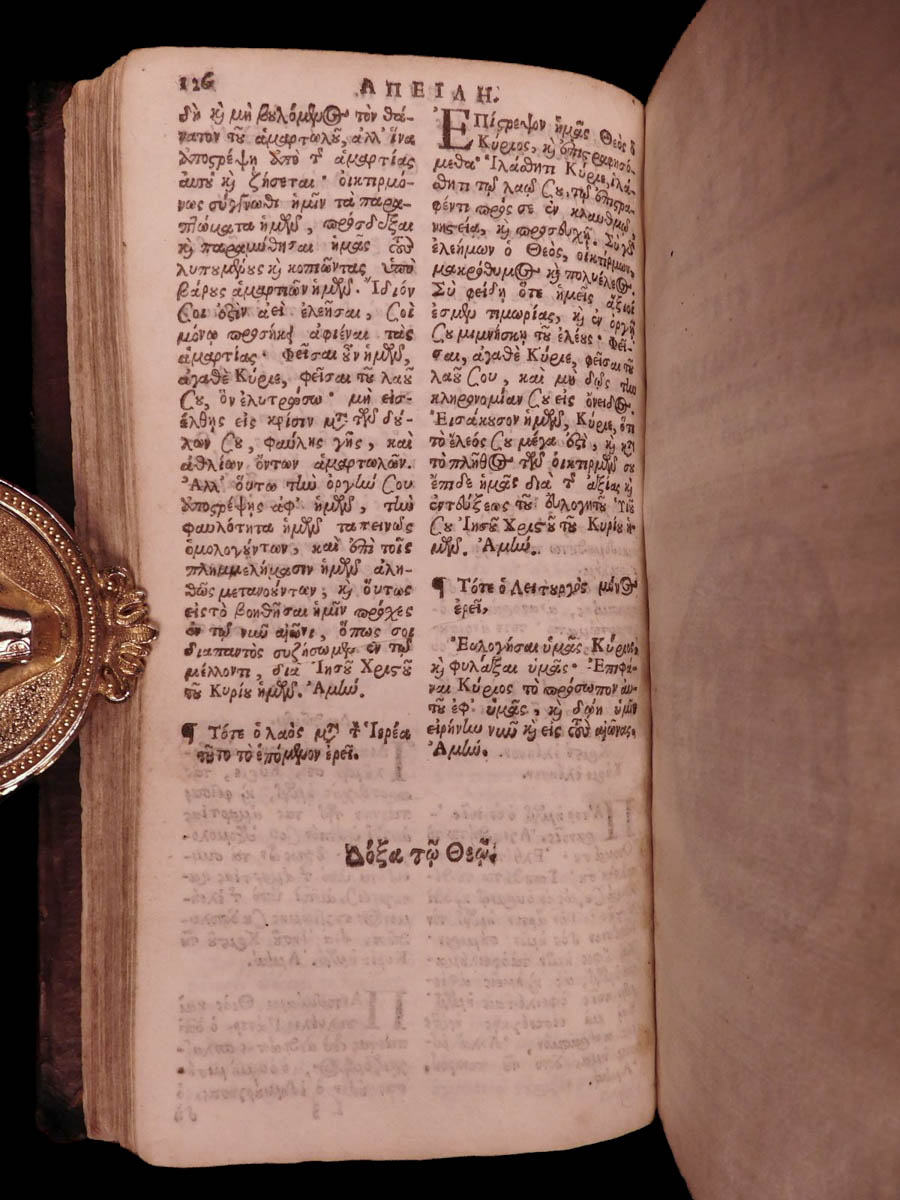 126 ΑΠΕΙΛΗ.
δὴ κỳ μὴ βουλόμενος τὸν θά-
νατον τοῦ ἁμαρτωλοῦ, ἀλλ' ἵνα
ἀποστρέψῃ ἀπὸ τῆς ἁμαρτίας
αὐτοῦ κỳ ζήσεται· οἰκτιρμό-
νως σύγγνωθι ἡμῖν τὰ παρα-
πτώματα ἡμῶν, πρόσδεξαι
κỳ παραμύθησαι ἡμᾶς τοὺς
λυπουμένους κỳ κοπιῶντας ὑπὸ
βάρους ἁμαρτιῶν ἡμῶν. Ἴδιόν
σοι ἐστὶν ἀεὶ ἐλεῆσαι, σοὶ
μόνῳ προσήκει ἀφιέναι τὰς
ἁμαρτίας· Φεῖσαι οὖν ἡμῶν,
ἀγαθὲ Κύριε, φεῖσαι τοῦ λαοῦ
σου, ὃν ἐλυτρώσω· μὴ εἰσ-
έλθῃς εἰς κρίσιν μετὰ τῶν δού-
λων σου, φαύλης γῆς, καὶ
ἀθλίων ὄντων ἁμαρτωλῶν.
Ἀλλ' οὕτω τὴν ὀργήν σου
ἀποστρέψῃς ἀφ' ἡμῶν, τὴν
φαυλότητα ἡμῶν ταπεινῶς
ὁμολογούντων, καὶ ἐπὶ τοῖς
πλημμελήμασιν ἡμῶν ἀλη-
θῶς μετανοούντων; κỳ οὕτως
εἰς τὸ βοηθῆσαι ἡμῖν πρόσχες
ἐν τῷ νῦν αἰῶνι, ὅπως σοι
διαπαντὸς συζήσωμεν ἐν τῷ
μέλλοντι, διὰ Ἰησοῦ Χριστοῦ
τοῦ Κυρίου ἡμῶν. Ἀμήν.
¶ Τότε ὁ λαὸς μετὰ τὸν Ἱερέα
τοῦτο τὸ ἑπόμενον ἐρεῖ.
ἘΠίστρεψον ἡμᾶς Θεὸς ὁ
Κύριος, κỳ ἐπιστραφησό-
μεθα· Ἱλάσθητι Κύριε, ἱλά-
σθητι τῷ λαῷ σου, τῷ ἐπιστρα-
φέντι πρός σε ἐν κλαυθμῷ,
νηστείᾳ, κỳ προσευχῇ. Σὺ γὰρ
ἐλεήμων ὁ Θεὸς, οἰκτίρμων,
μακρόθυμος κỳ πολυέλεος.
Σὺ φείδῃ ὅτε ἡμεῖς ἄξιοί
ἐσμεν τιμωρίας, κỳ ἐν ὀργῇ
σου μιμνήσκῃ τοῦ ἐλέους· Φεῖ-
σαι, ἀγαθὲ Κύριε, φεῖσαι τοῦ
λαοῦ σου, καὶ μὴ δῷς τὴν
κληρονομίαν σου εἰς ὄνειδος.
Εἰσάκουσον ἡμῶν, Κύριε, ὅτι
τὸ ἔλεός σου μέγα ἐστὶ, κỳ κατὰ
τὸ πλῆθος τῶν οἰκτιρμῶν σου
ἔπιδε ἡμᾶς διὰ τῆς ἀξίας κỳ
ἐντεύξεως τοῦ εὐλογητοῦ Υἱοῦ
σου Ἰησοῦ Χριστοῦ τοῦ Κυρίου ἡ-
μῶν. Ἀμήν.
¶ Τότε ὁ Λειτουργὸς μόνος
ἐρεῖ,
Εὐλογήσαι ὑμᾶς Κύριος,
κỳ φυλάξαι ὑμᾶς· Ἐπιφά-
ναι Κύριος τὸ πρόσωπον αὑ-
τοῦ ἐφ' ὑμᾶς, κỳ δῴη ὑμῖν
εἰρήνην νῦν κỳ εἰς τοὺς αἰῶνας.
Ἀμήν.
Δόξα τῷ Θεῷ.